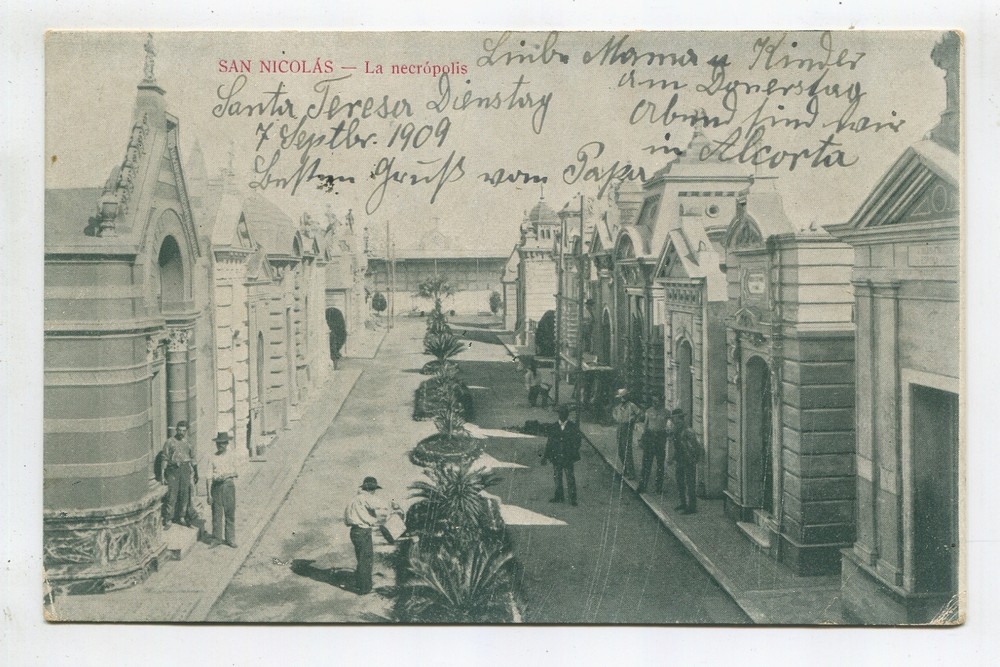 SAN NICOLÁS — La necrópolis
Santa Teresa Dienstag
7 Septbr. 1909
Besten Gruß vom Papa
Liebe Mama u Kinder
am Donerstag
Abend sind wir
in Alcorta